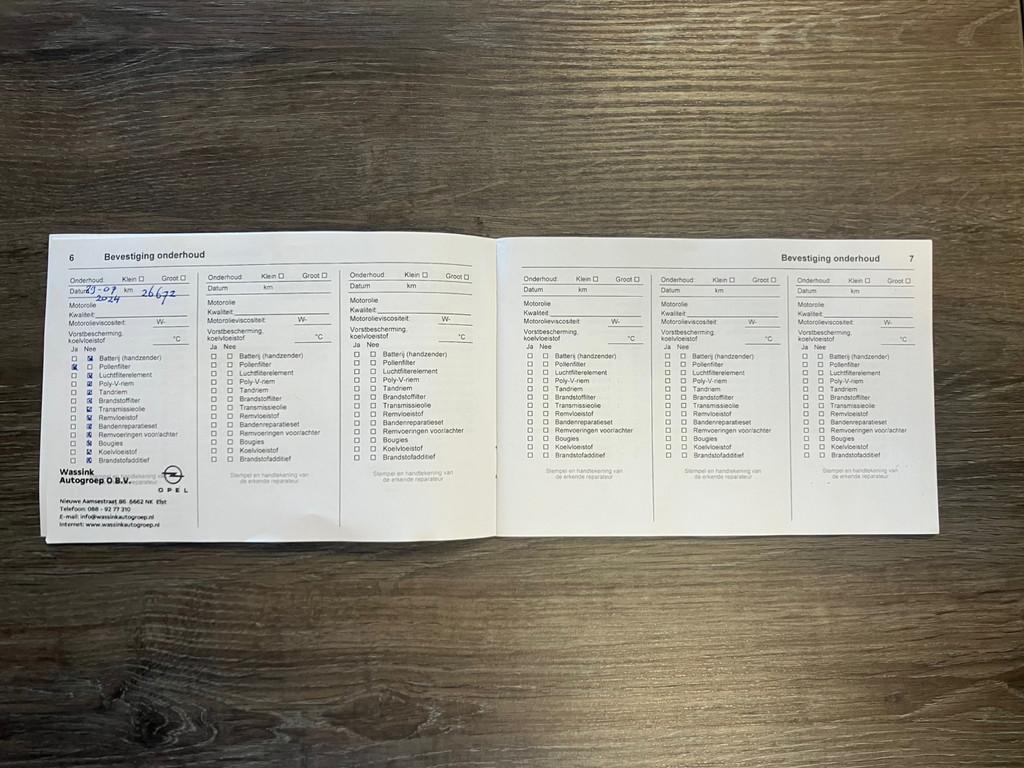 6 Bevestiging onderhoud
Onderhoud: Klein ☐ Groot ☐
Datum 29-07 2024 km 26672
Motorolie
Kwaliteit:
Motorolieviscositeit: W-
Vorstbescherming,
koelvloeistof °C
Ja Nee
☐ ☑ Batterij (handzender)
☑ ☐ Pollenfilter
☐ ☑ Luchtfilterelement
☐ ☑ Poly-V-riem
☐ ☑ Tandriem
☐ ☑ Brandstoffilter
☐ ☑ Transmissieolie
☐ ☑ Remvloeistof
☐ ☑ Bandenreparatieset
☐ ☑ Remvoeringen voor/achter
☐ ☑ Bougies
☐ ☑ Koelvloeistof
☐ ☑ Brandstofadditief
Wassink
Autogroep O B.V.
OPEL
Nieuwe Aamsestraat 86 6662 NK Elst
Telefoon: 088 - 92 77 310
E-mail: info@wassinkautogroep.nl
Internet: www.wassinkautogroep.nl
Onderhoud: Klein ☐ Groot ☐
Datum km
Motorolie
Kwaliteit:
Motorolieviscositeit: W-
Vorstbescherming,
koelvloeistof °C
Ja Nee
☐ ☐ Batterij (handzender)
☐ ☐ Pollenfilter
☐ ☐ Luchtfilterelement
☐ ☐ Poly-V-riem
☐ ☐ Tandriem
☐ ☐ Brandstoffilter
☐ ☐ Transmissieolie
☐ ☐ Remvloeistof
☐ ☐ Bandenreparatieset
☐ ☐ Remvoeringen voor/achter
☐ ☐ Bougies
☐ ☐ Koelvloeistof
☐ ☐ Brandstofadditief
Stempel en handtekening van
de erkende reparateur
Onderhoud: Klein ☐ Groot ☐
Datum km
Motorolie
Kwaliteit:
Motorolieviscositeit: W-
Vorstbescherming,
koelvloeistof °C
Ja Nee
☐ ☐ Batterij (handzender)
☐ ☐ Pollenfilter
☐ ☐ Luchtfilterelement
☐ ☐ Poly-V-riem
☐ ☐ Tandriem
☐ ☐ Brandstoffilter
☐ ☐ Transmissieolie
☐ ☐ Remvloeistof
☐ ☐ Bandenreparatieset
☐ ☐ Remvoeringen voor/achter
☐ ☐ Bougies
☐ ☐ Koelvloeistof
☐ ☐ Brandstofadditief
Stempel en handtekening van
de erkende reparateur
Bevestiging onderhoud 7
Onderhoud: Klein ☐ Groot ☐
Datum km
Motorolie
Kwaliteit:
Motorolieviscositeit: W-
Vorstbescherming,
koelvloeistof °C
Ja Nee
☐ ☐ Batterij (handzender)
☐ ☐ Pollenfilter
☐ ☐ Luchtfilterelement
☐ ☐ Poly-V-riem
☐ ☐ Tandriem
☐ ☐ Brandstoffilter
☐ ☐ Transmissieolie
☐ ☐ Remvloeistof
☐ ☐ Bandenreparatieset
☐ ☐ Remvoeringen voor/achter
☐ ☐ Bougies
☐ ☐ Koelvloeistof
☐ ☐ Brandstofadditief
Stempel en handtekening van
de erkende reparateur
Onderhoud: Klein ☐ Groot ☐
Datum km
Motorolie
Kwaliteit:
Motorolieviscositeit: W-
Vorstbescherming,
koelvloeistof °C
Ja Nee
☐ ☐ Batterij (handzender)
☐ ☐ Pollenfilter
☐ ☐ Luchtfilterelement
☐ ☐ Poly-V-riem
☐ ☐ Tandriem
☐ ☐ Brandstoffilter
☐ ☐ Transmissieolie
☐ ☐ Remvloeistof
☐ ☐ Bandenreparatieset
☐ ☐ Remvoeringen voor/achter
☐ ☐ Bougies
☐ ☐ Koelvloeistof
☐ ☐ Brandstofadditief
Stempel en handtekening van
de erkende reparateur
Onderhoud: Klein ☐ Groot ☐
Datum km
Motorolie
Kwaliteit:
Motorolieviscositeit: W-
Vorstbescherming,
koelvloeistof °C
Ja Nee
☐ ☐ Batterij (handzender)
☐ ☐ Pollenfilter
☐ ☐ Luchtfilterelement
☐ ☐ Poly-V-riem
☐ ☐ Tandriem
☐ ☐ Brandstoffilter
☐ ☐ Transmissieolie
☐ ☐ Remvloeistof
☐ ☐ Bandenreparatieset
☐ ☐ Remvoeringen voor/achter
☐ ☐ Bougies
☐ ☐ Koelvloeistof
☐ ☐ Brandstofadditief
Stempel en handtekening van
de erkende reparateur